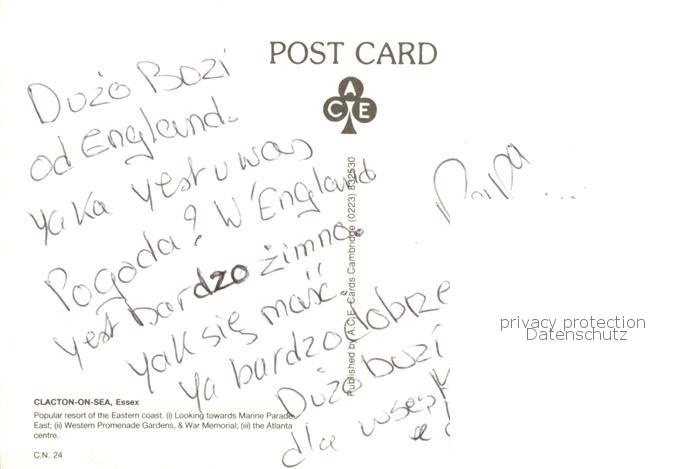 POST CARD
A
C E
Dużo Bozi
od England.
yaka yest u was
Pogoda? W England
yest bardzo żimno.
yak się masz.
ya bardzo dobrze
Dużo bozi
dla
Papa
Published by A.C.E. Cards Cambridge (0223) 832530
privacy protection
Datenschutz
CLACTON-ON-SEA, Essex
Popular resort of the Eastern coast. (i) Looking towards Marine Parade
East; (ii) Western Promenade Gardens, & War Memorial; (iii) the Atlanta
centre.
C.N. 24